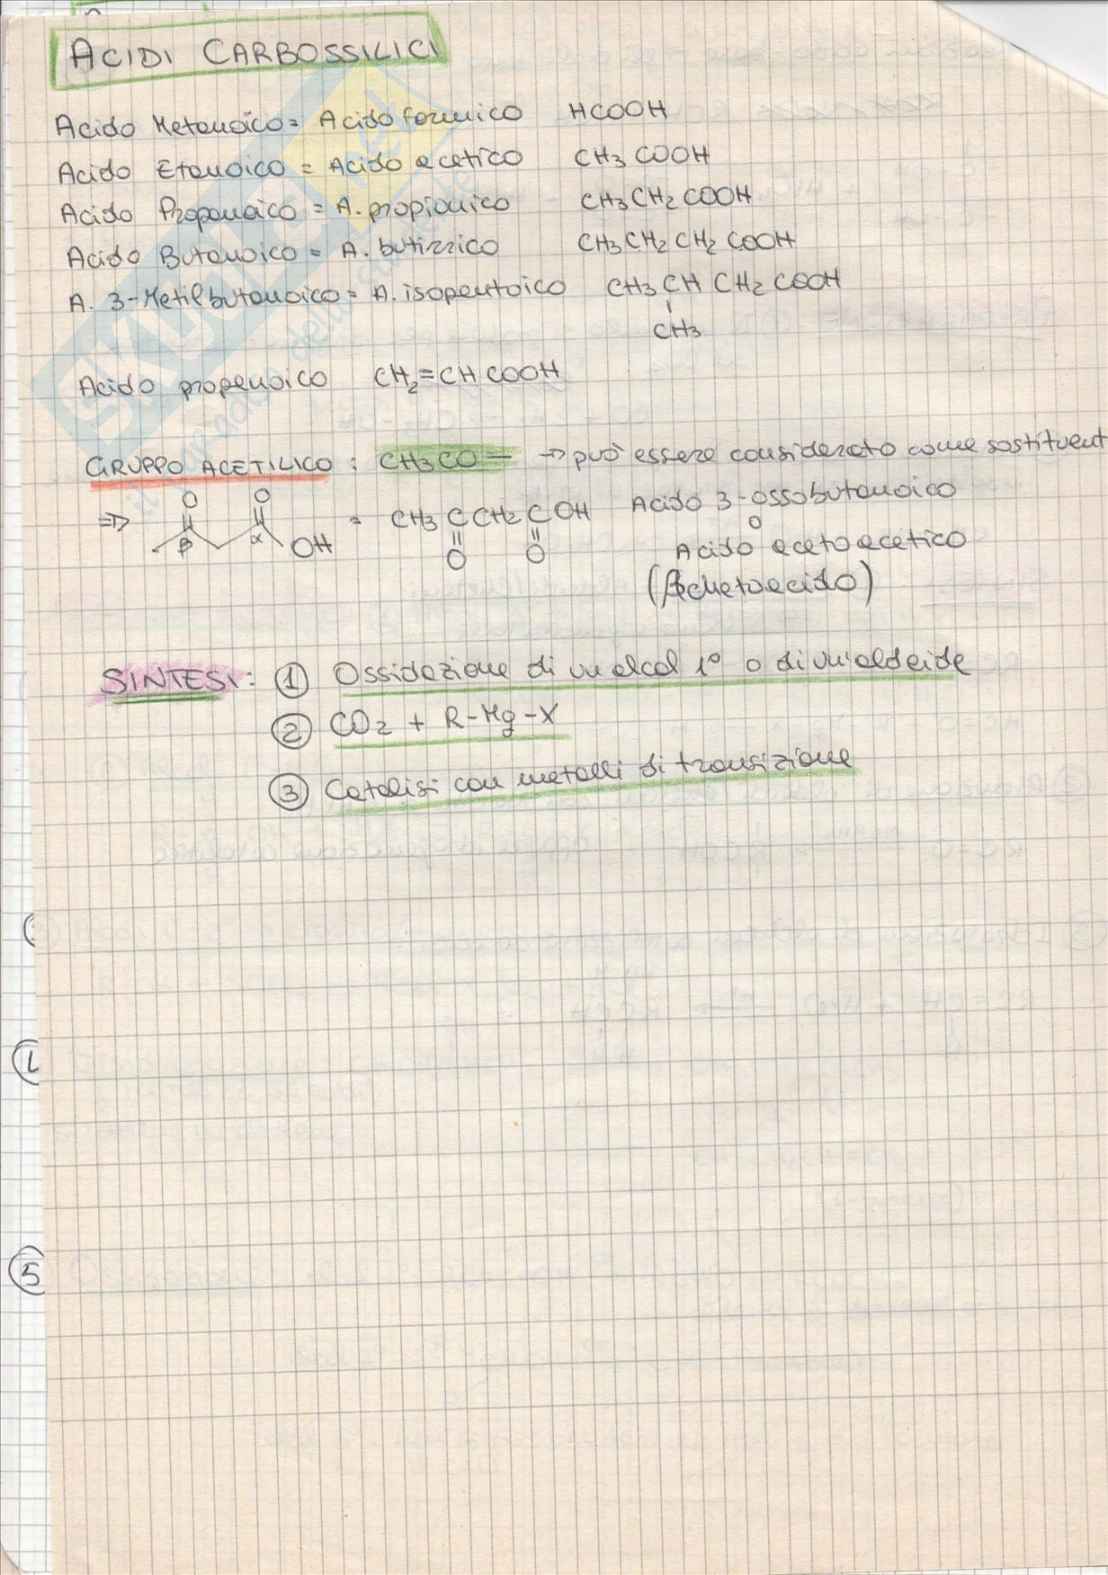 ACIDI CARBOSSILICI
Acido Metanoico = Acido formico HCOOH
Acido Etanoico = Acido acetico CH3 COOH
Acido Propanoico = A. propionico CH3CH2COOH
Acido Butanoico = A. butirrico CH3CH2CH2COOH
A. 3-Metilbutanoico = A. isopentoico CH3CH CH2 COOH
CH3
Acido propenoico CH2=CH COOH
GRUPPO ACETILICO : CH3CO— → può essere considerato come sostituent
⇒ O O β α OH = CH3 C CH2 C OH Acido 3-ossobutanoico
O O o
Acido acetoacetico
(βchetoacido)
SINTESI: ① Ossidazione di un alcol 1° o di un'aldeide
② CO2 + R-Mg-X
③ Catalisi con metalli di transizione
5